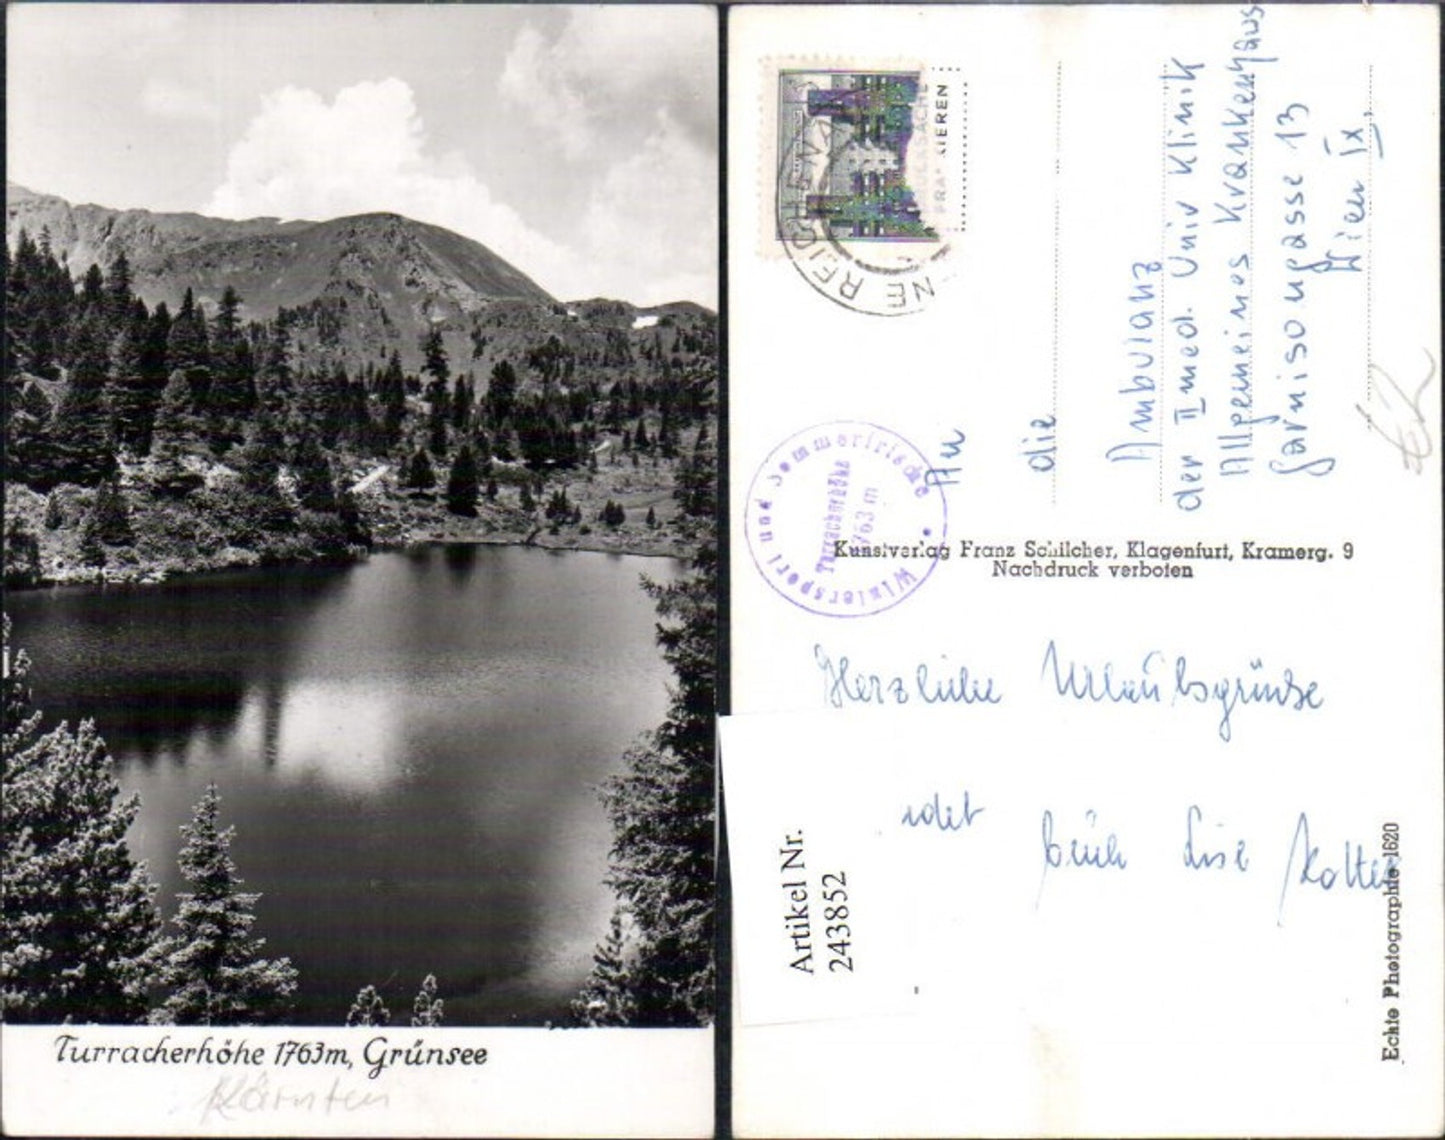 Turracherhöhe 1763m, Grünsee
Kärnten
NE REICHENAU
IEREN
Wintersport und Sommerfrische
Turracherhöhe
1763 m
An
die
Ambulanz
der II med. Univ Klinik
Allgemeines Krankenhaus
Garnisongasse 13
Wien IX,
Kunstverlag Franz Schilcher, Klagenfurt, Kramerg. 9
Nachdruck verboten
Herzliche Urlaubsgrüsse
Lise
Artikel Nr.
243852
Echte Photographie 1620